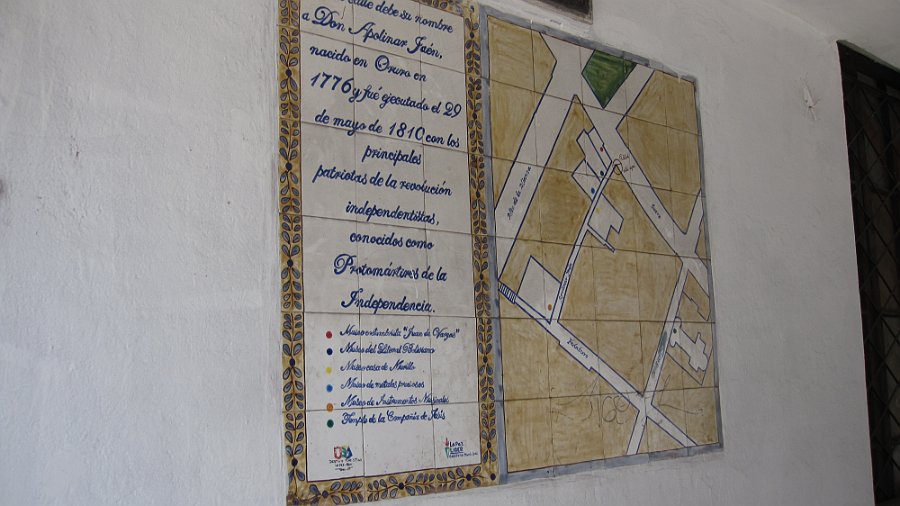 calle debe su nombre
a Don Apolinar Jaén,
nacido en Oruro en
1776 y fué ejecutado el 29
de mayo de 1810 con los
principales
patriotas de la revolución
independentistas,
conocidos como
Protomártires de la
Independencia.
Museo costumbrista "Juan de Vargas"
Museo del Litoral Boliviano
Museo casa de Murillo
Museo de metales preciosos
Museo de Instrumentos Musicales
Templo de la Compañía de Jesús
La Paz
LIDER
Sucre
Indaburo